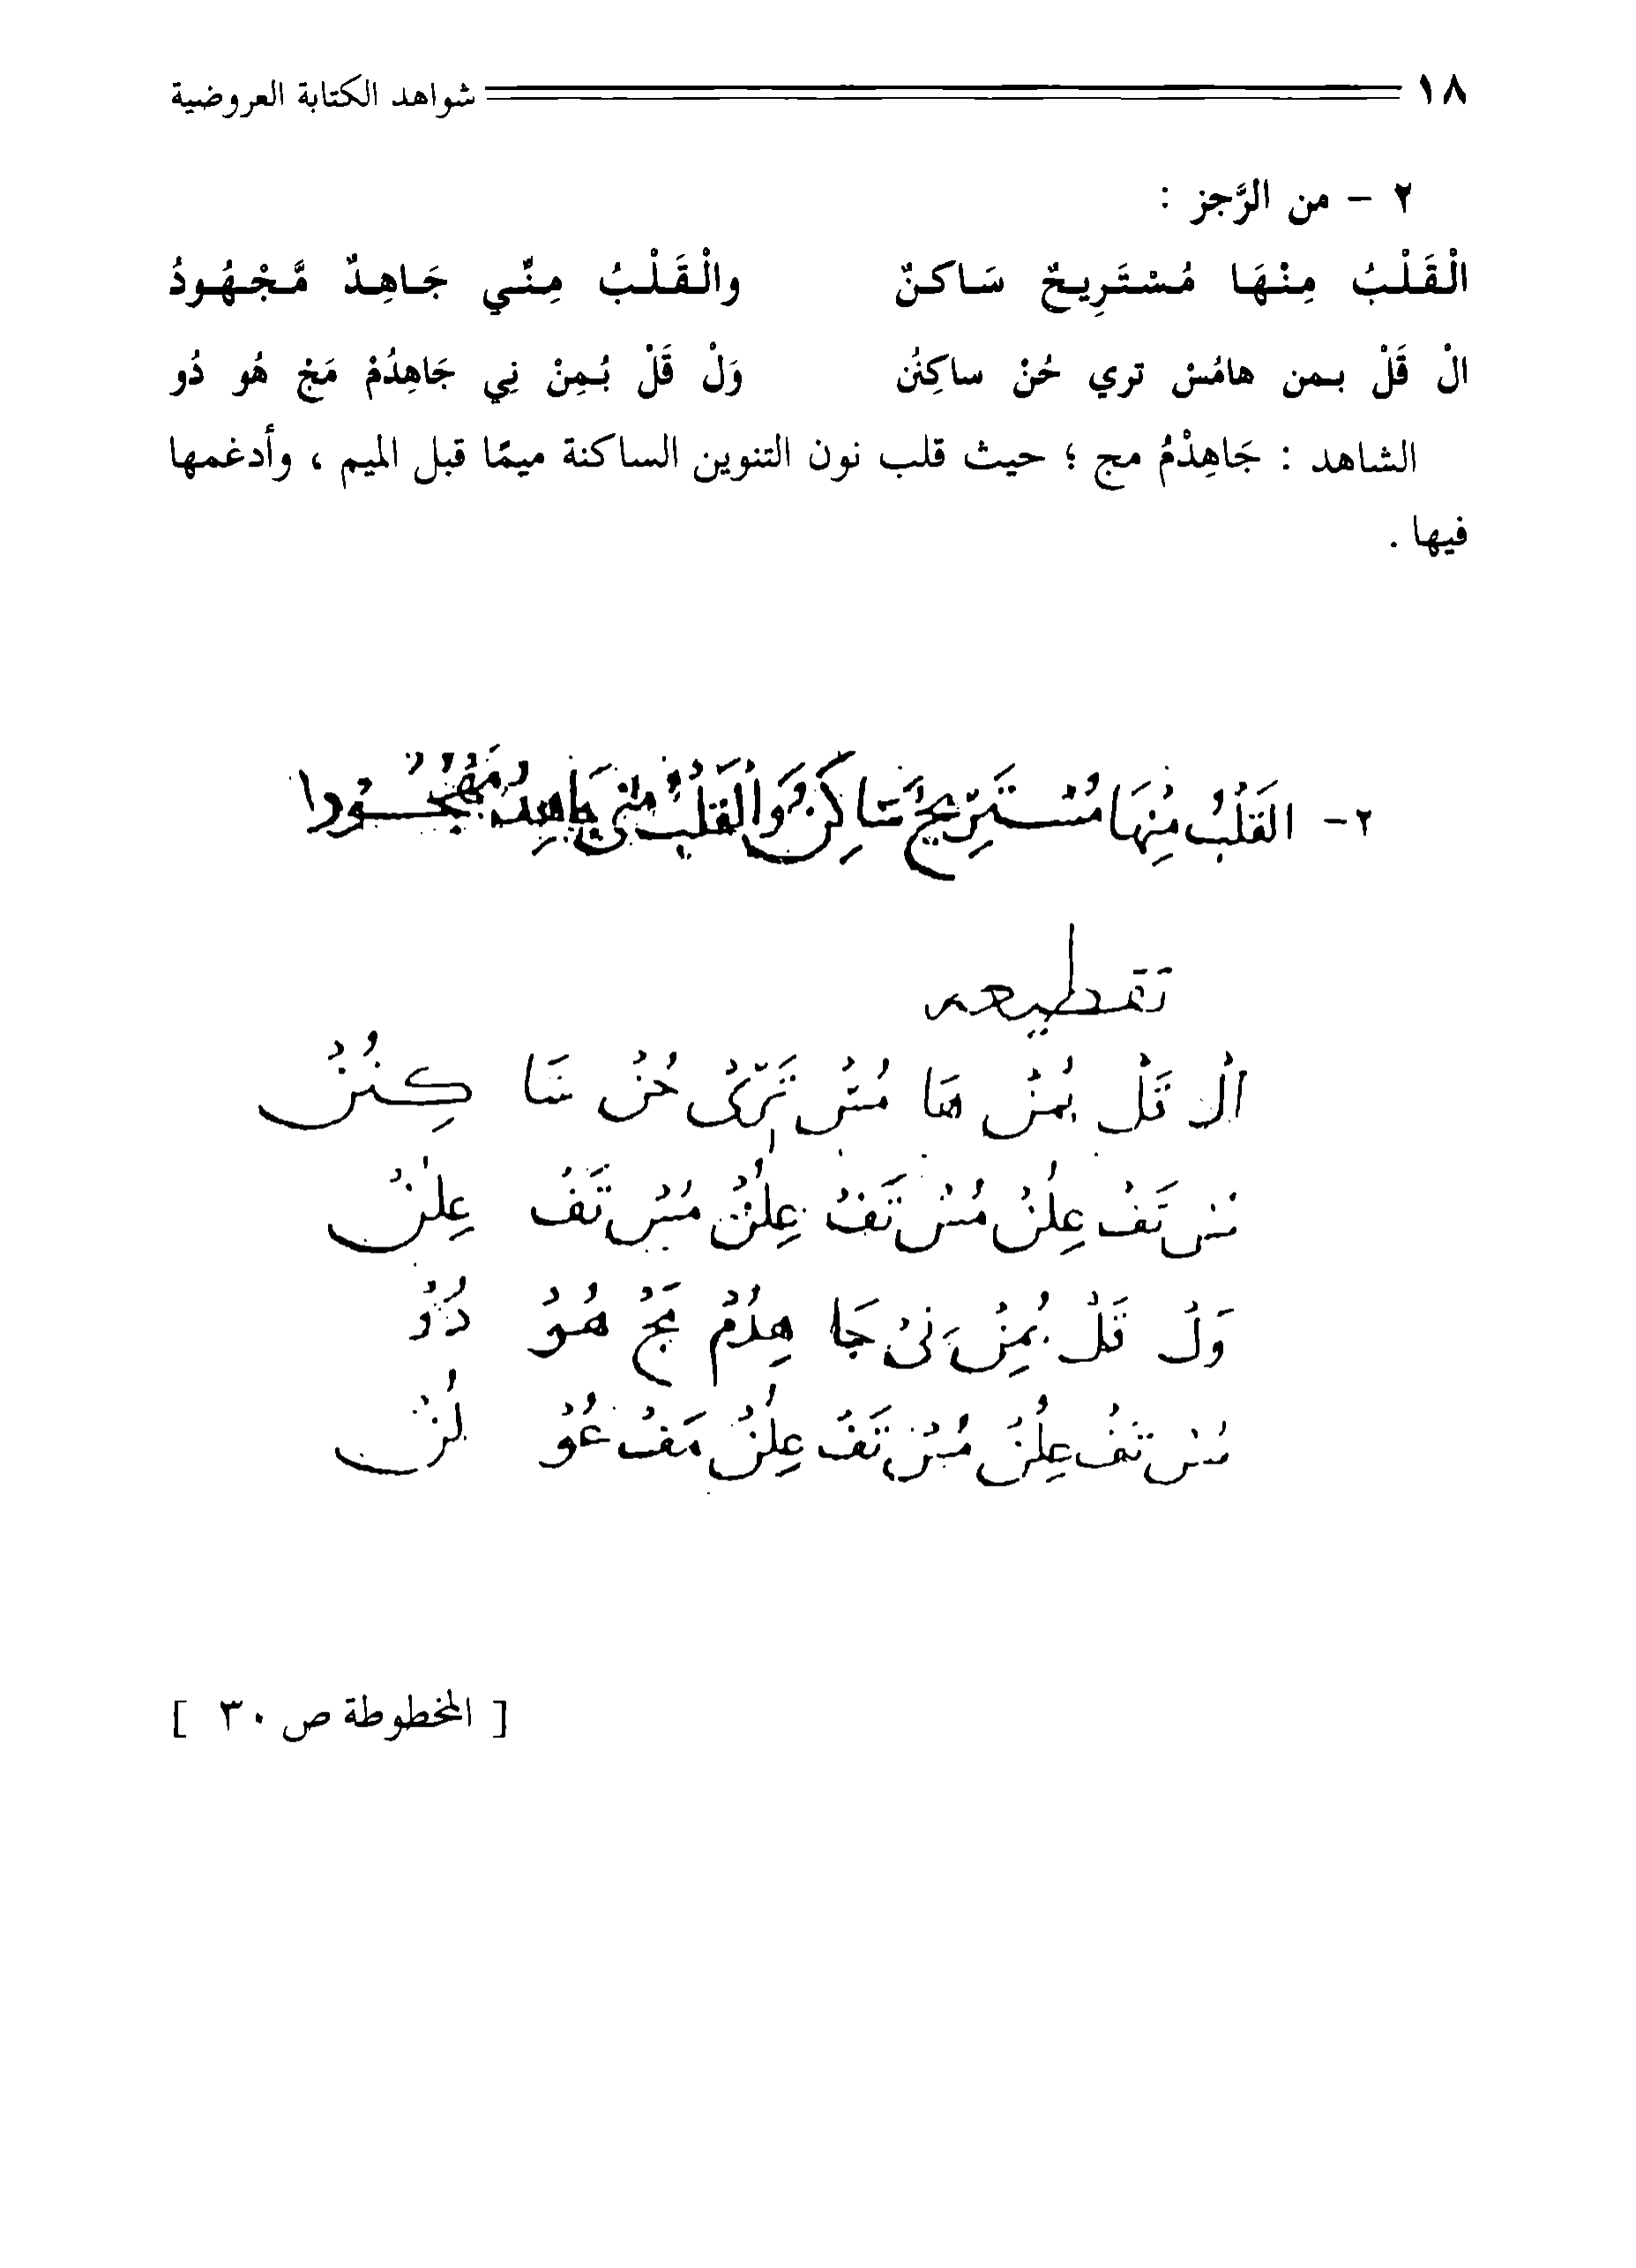 ١٨ شواهد الكتابة العروضية
٢ - من الرَّجز :
الْقَلْبُ مِنْهَا مُسْتَرِيحٌ سَاكنٌ والْقَلْبُ مِنِّي جَاهِدٌ مَّجْهُودُ
الْ قَلْ بمن هامُسْ تري حُنْ ساكِنُن وَلْ قَلْ بُمِنْ نِي جَاهِدُمْ مَجْ هُو دُو
الشاهد : جَاهِدْمُ مج ؛ حيث قلب نون التنوين الساكنة ميمًا قبل الميم ، وأدغمها
فيها .
٢- القَلْبُ مِنْهَا مُسْتَرِيحٌ سَاكِنٌ وَالْقَلْبُ مِنِّي جَاهِدٌ مَجْهُودُ
تقطيعه
الْ قَلْ بُمِنْ هَا مُسْ تَرِىْ حُنْ سَا كِنُنْ
مُسْ تَفْ عِلُنْ مُسْ تَفْ عِلُنْ مُسْ تَفْ عِلُنْ
وَلْ قَلْ بُمِنْ نِىْ جَا هِدُمْ مَجْ هُوْ دُوْ
مُسْ تَفْ عِلُنْ مُسْ تَفْ عِلُنْ مَفْ عُوْ لُنْ
[ المخطوطة ص ٣٠ ]